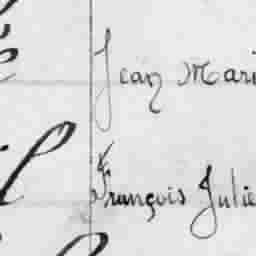 Jean Mari
François Julie